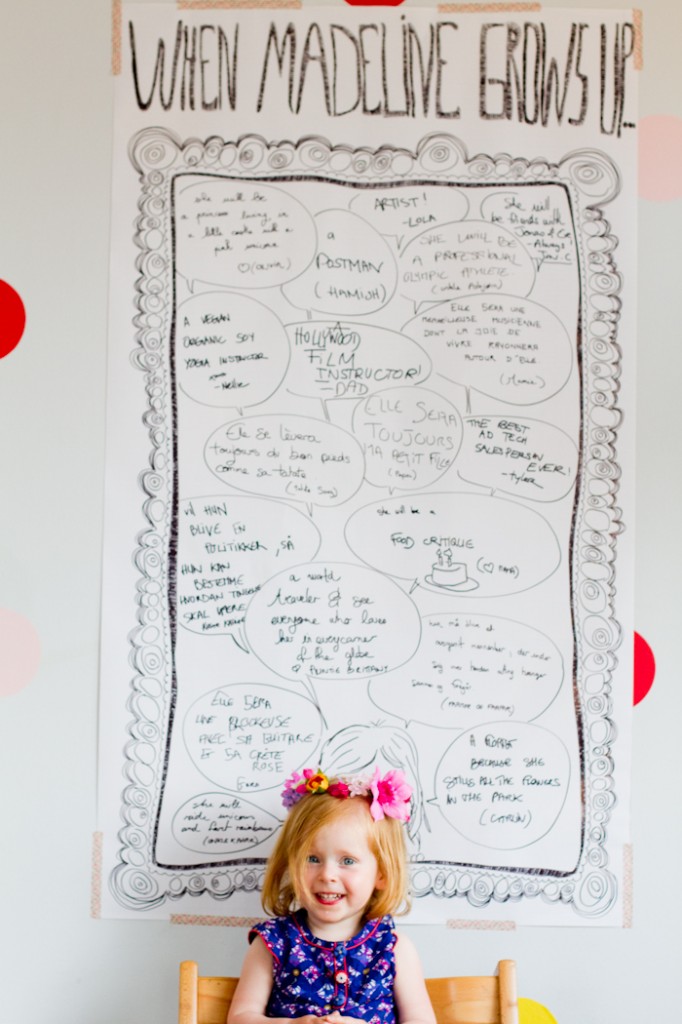 WHEN MADELINE GROWS UP...
she will be
a princess living in
a little castle with a
pink unicorn
(Olivia)
a
POSTMAN
(HAMISH)
ARTIST!
-LOLA
She will
be friends with
Jonas &
-Always!
Jon.C
SHE WILL BE
A PROFESSIONAL
OLYMPIC ATHLETE
A VEGAN
ORGANIC SOY
YOGA INSTRUCTOR
-Nellie
A
HOLLYWOOD
FILM
INSTRUCTOR!
-DAD
ELLE SERA UNE
MERVEILLEUSE MUSICIENNE
DONT LA JOIE DE
VIVRE RAYONNERA
AUTOUR D'ELLE
(Mamie)
Elle se lèvera
toujours de bon pieds
comme sa tata
ELLE SERA
TOUJOURS
MA PETIT FILLE
(Papa)
THE BEST
AD TECH
SALESPERSON
EVER!
-Tyler
VIL HUN
BLIVE EN
POLITIKKER, SÅ
HUN KAN
BESTEMME
HVORDAN TINGENE
SKAL VÆRE
she will be a
FOOD CRITIQUE
a world
traveler & see
everyone who loves
her in every corner
of the globe
AUNTIE BRITTANY
ELLE SERA
UNE ROCKEUSE
AVEC SA GUITARE
& SA CRÈTE
ROSE
she will
ride unicorns
and hunt rainbows
BECAUSE SHE
STILLS ALL THE FLOWERS
IN THE PARK